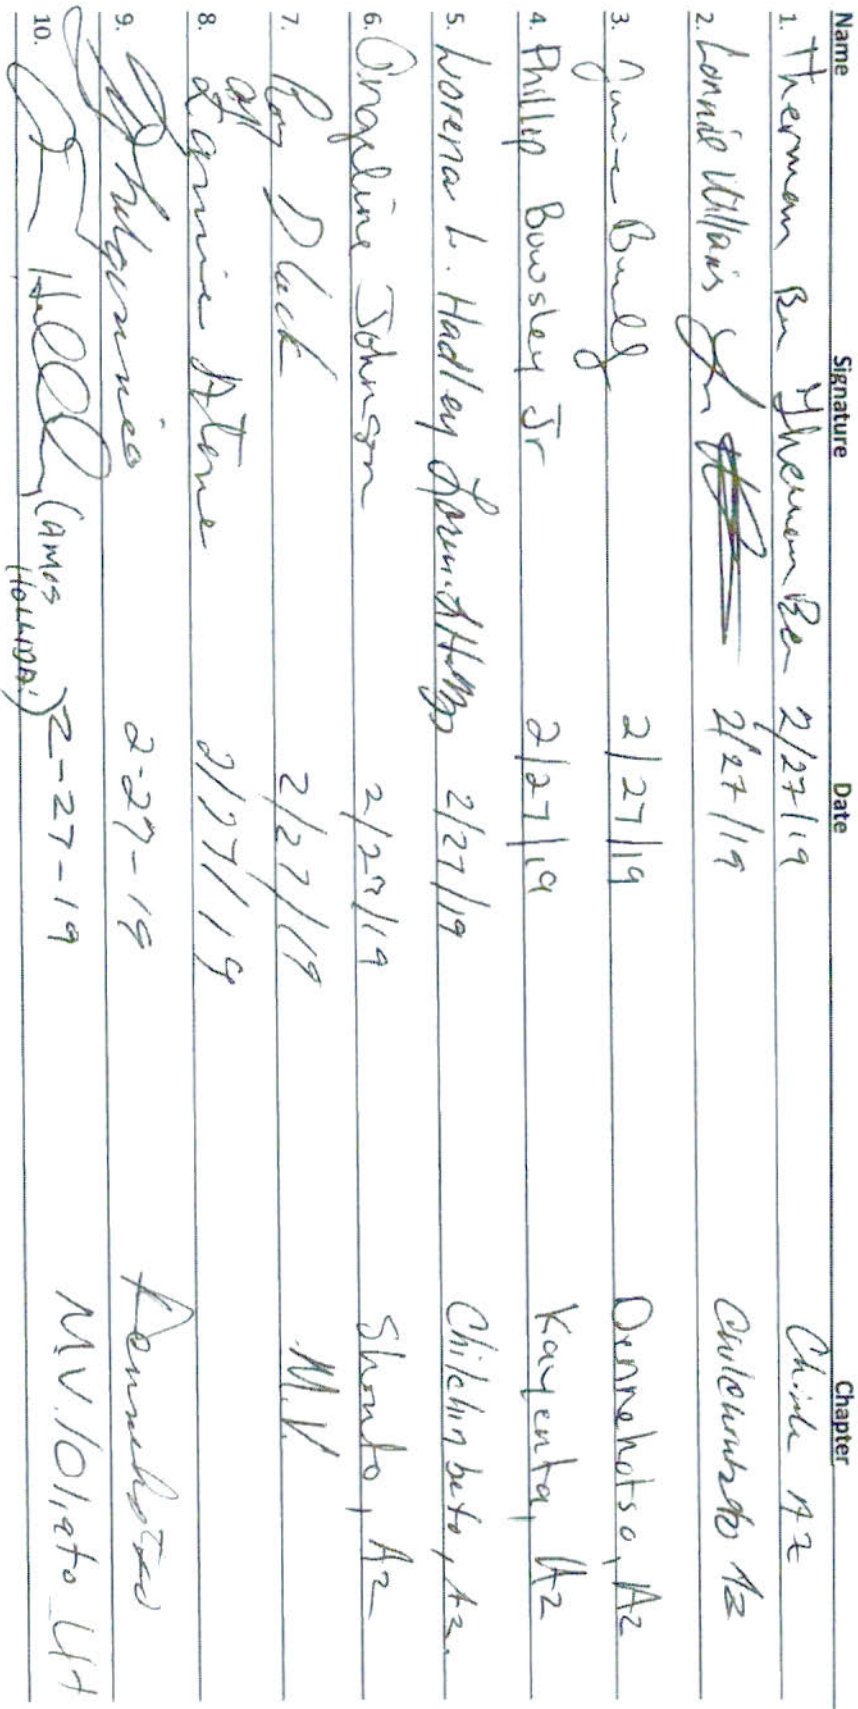 Name Signature Date Chapter
1. Therman Ben Therman Ben 2/27/19 Chinle AZ
2. Lonnie Willams 2/27/19 AZ
3. Junie 2/27/19 Dennehotso, Az
4. Phillip Bowsley Jr 2/27/19 Kayenta, Az
5. Lorena L. Hadley 2/27/19 Chilchinbeto, Az.
6. Angeline Johnson 2/27/19 Shonto, Az
7. Roy Black 2/27/19 M.V.
8. Atene 2/27/19
9. 2-27-19 Dennehotso
10. (AMOS HOLLIDAY) 2-27-19 M.V./Oljato UT